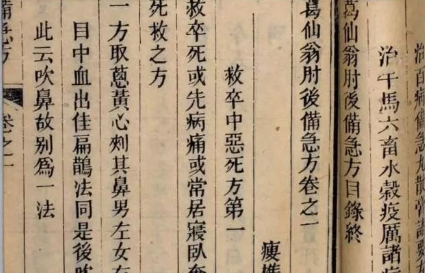 治百病備急丸散膏諸要方
治牛馬六畜水穀疫厲諸病
葛仙翁肘後備急方目錄終
葛仙翁肘後備急方卷之一
瘦樵
救卒中惡死方第一
救卒死或先病痛或常居寢臥奄
死救之方
一方取葱黃心刺其鼻男左女右
目中血出佳扁鵲法同是後吹
此云吹鼻故別爲一法
備急方
卷之一